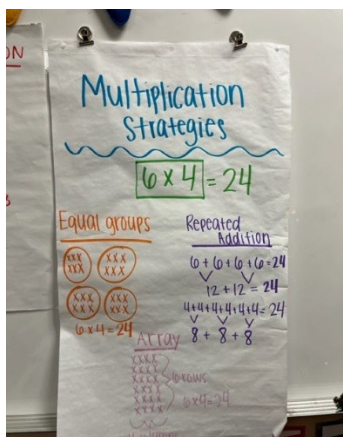 ON
Multiplication
Strategies
6 x 4 = 24
Equal groups
xxx xxx
xxx xxx
xxx xxx
xxx xxx
6 x 4 = 24
Repeated
Addition
6 + 6 + 6 + 6 = 24
12 + 12 = 24
4+4+4+4+4+4 = 24
8 + 8 + 8
Array
xxxx
xxxx
xxxx
xxxx
xxxx
xxxx
6 rows
6x4=24